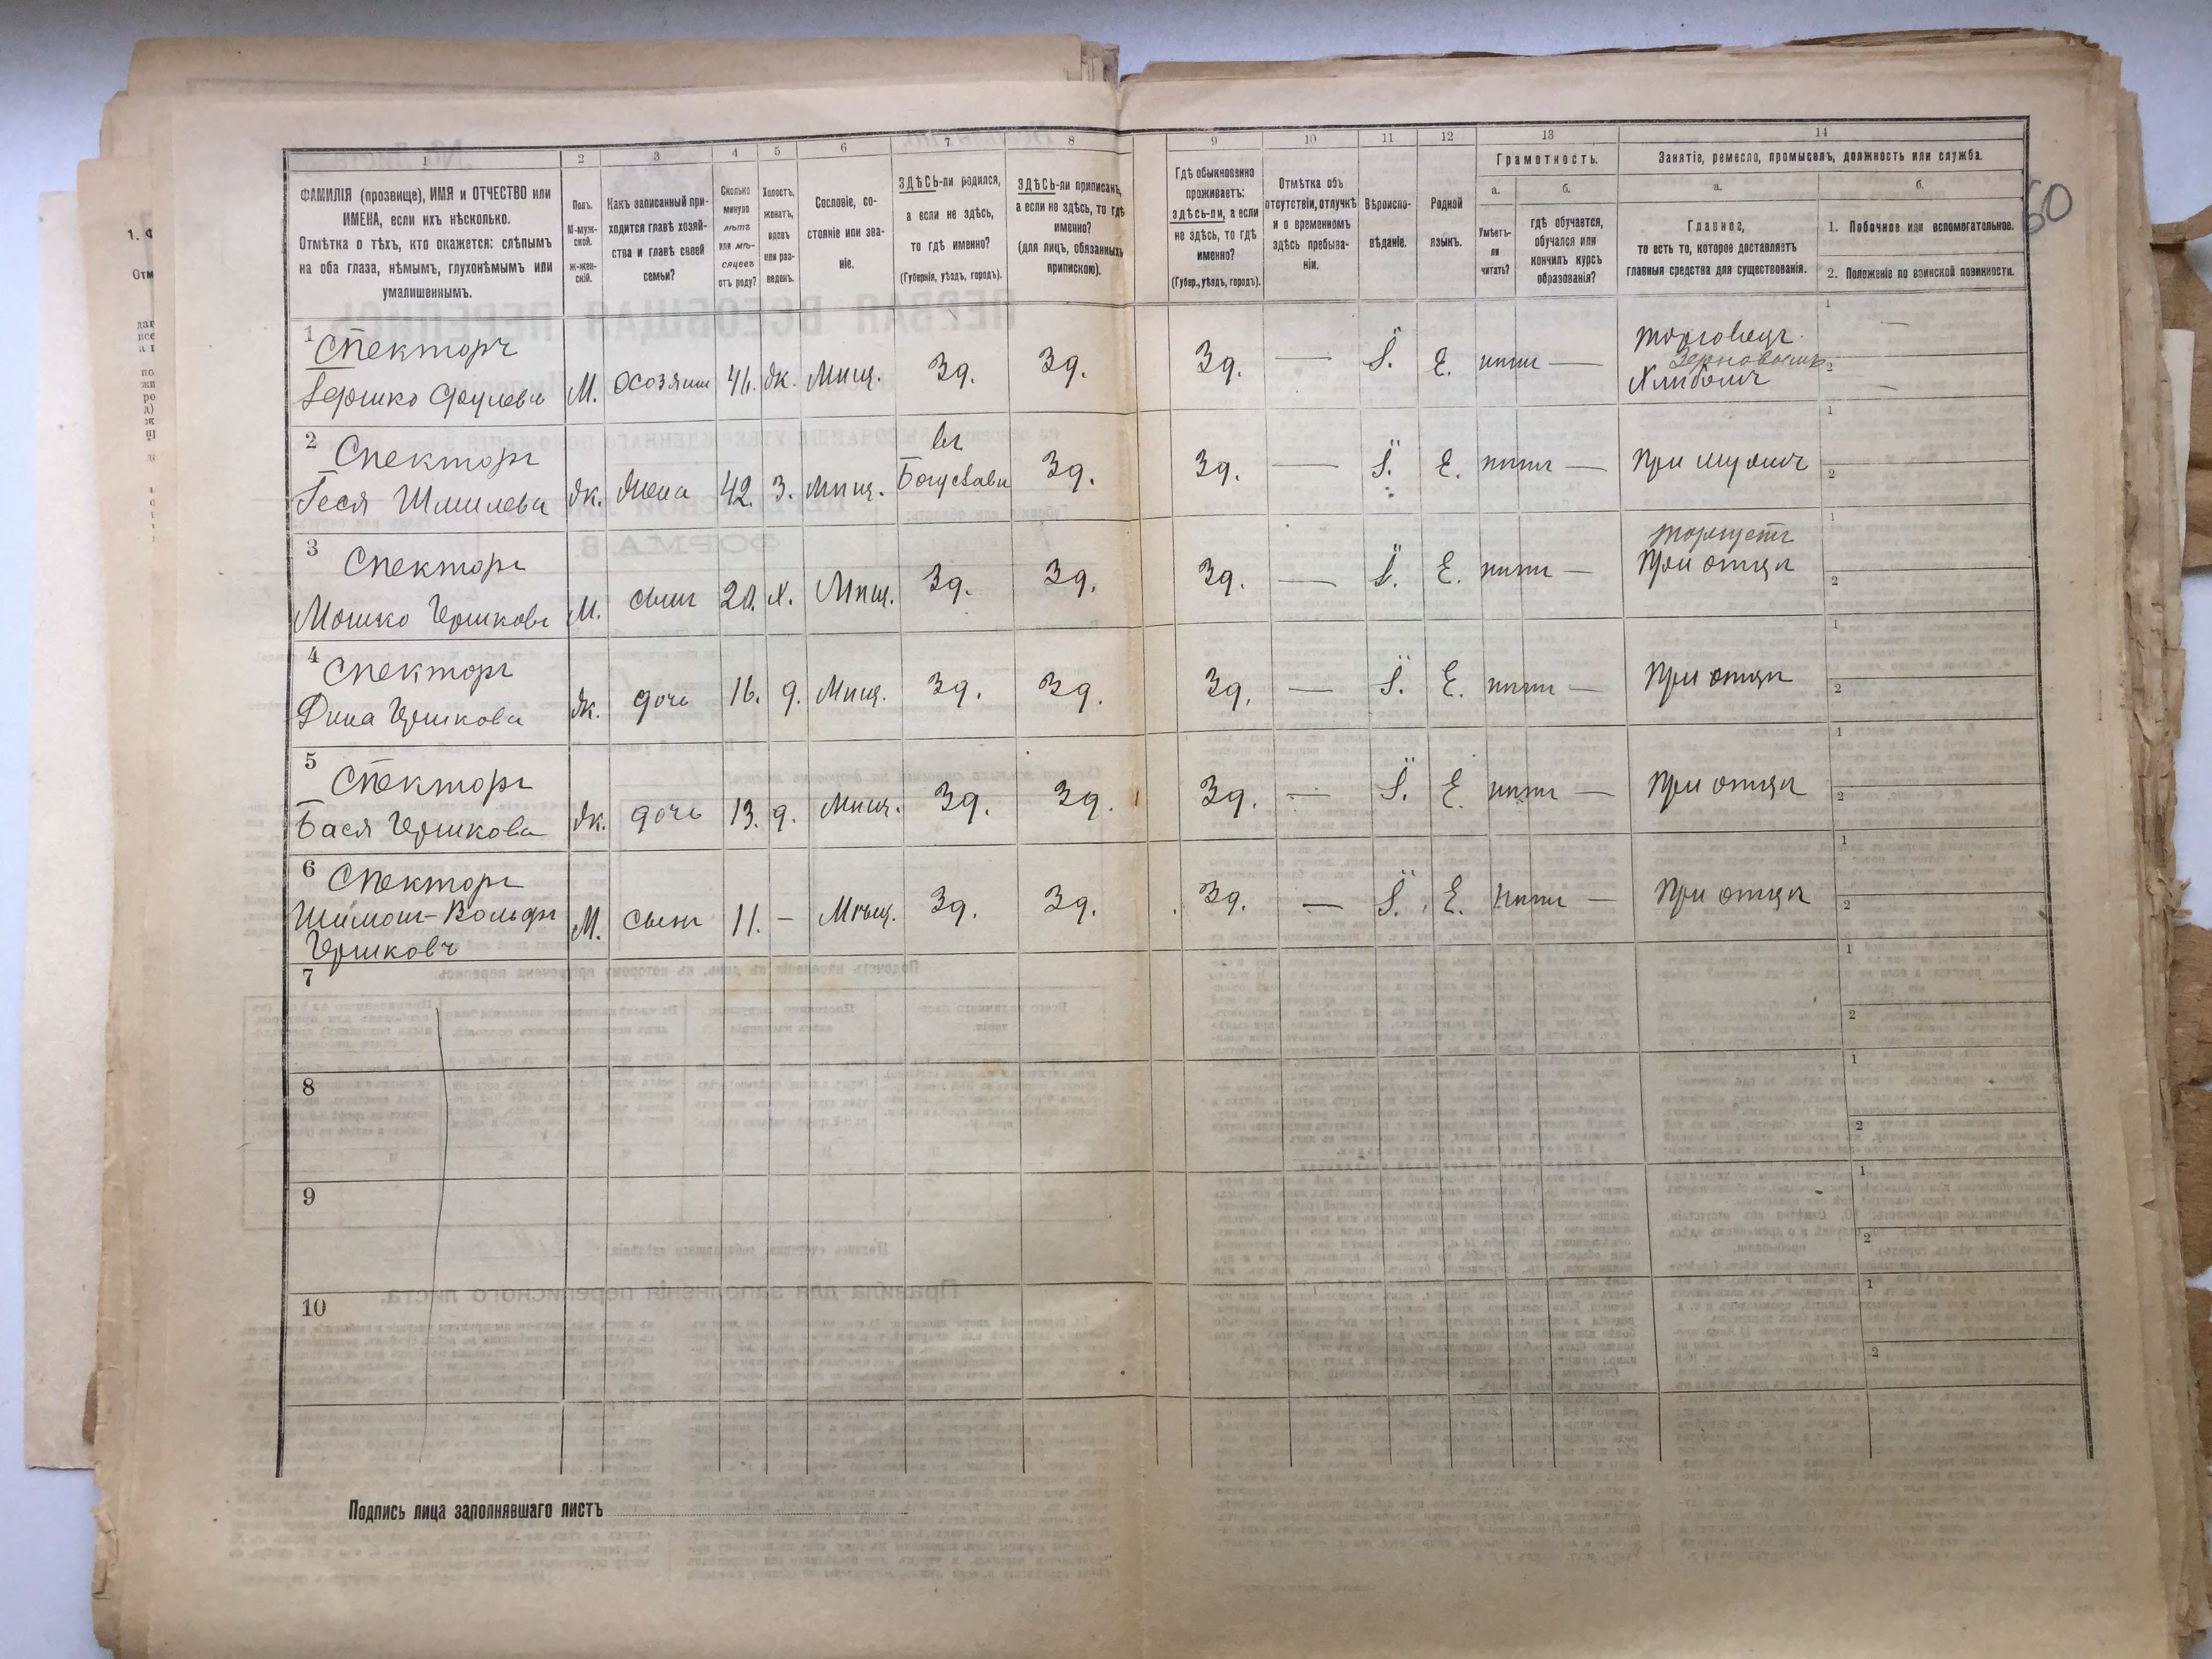 60
1 2 3 4 5 6 7 8 9 10 11 12 13 14
ФАМИЛІЯ (прозвище), ИМЯ и ОТЧЕСТВО или ИМЕНА, если ихъ нѣсколько.
Отмѣтка о тѣхъ, кто окажется: слѣпымъ на оба глаза, нѣмымъ, глухонѣмымъ или умалишеннымъ.
Полъ. М-муж-ской. Ж-жен-скій.
Какъ записанный при-ходится главѣ хозяй-ства и главѣ своей семьи?
Сколько минуло лѣтъ или мѣ-сяцевъ отъ роду?
Холостъ, женатъ, вдовъ или раз-веденъ.
Сословіе, со-стояніе или зва-ніе.
ЗДѢСЬ-ли родился, а если не здѣсь, то гдѣ именно? (Губернія, уѣздъ, городъ).
ЗДѢСЬ-ли приписанъ, а если не здѣсь, то гдѣ именно? (для лицъ, обязанныхъ припискою).
Гдѣ обыкновенно проживаетъ: здѣсь-ли, а если не здѣсь, то гдѣ именно? (Губер., уѣздъ, городъ).
Отмѣтка объ отсутствіи, отлучкѣ и о временномъ здѣсь пребыва-ніи.
Вѣроиспо-вѣданіе.
Родной языкъ.
Грамотность.
а. Умѣетъ-ли читать?
б. гдѣ обучается, обучался или кончилъ курсъ образованія?
Занятіе, ремесло, промыселъ, должность или служба.
а. Главное, то есть то, которое доставляетъ главныя средства для существованія.
б.
1. Побочное или вспомогательное.
2. Положеніе по воинской повинности.
1 Спекторъ
Гершко Срулевъ М. хозяин 41. Ж. Мищ. Зд. Зд. Зд. — І. Е. нѣтъ — торговецъ зерновымъ хлѣбомъ — —
2 Спекторъ
Геся Шмилева Ж. жена 42. З. Мѣщ. въ Богуславѣ Зд. Зд. — І. Е. нѣтъ — При мужѣ
3 Спекторъ
Мошко Гершковъ М. сынъ 20. Х. Мѣщ. Зд. Зд. Зд. — І. Е. нѣтъ — торгуетъ При отцѣ
4 Спекторъ
Дина Гершкова Ж. дочь 16. д. Мѣщ. Зд. Зд. Зд. — І. Е. нѣтъ — При отцѣ
5 Спекторъ
Бася Гершкова Ж. дочь 13. д. Мѣщ. Зд. Зд. Зд. — І. Е. нѣтъ — При отцѣ
6 Спекторъ
Шимон-Вольфъ
Гершковъ М. сынъ 11. — Мѣщ. Зд. Зд. Зд. — І. Е. нѣтъ — При отцѣ
7
8
9
10
Подпись лица заполнявшаго листъ